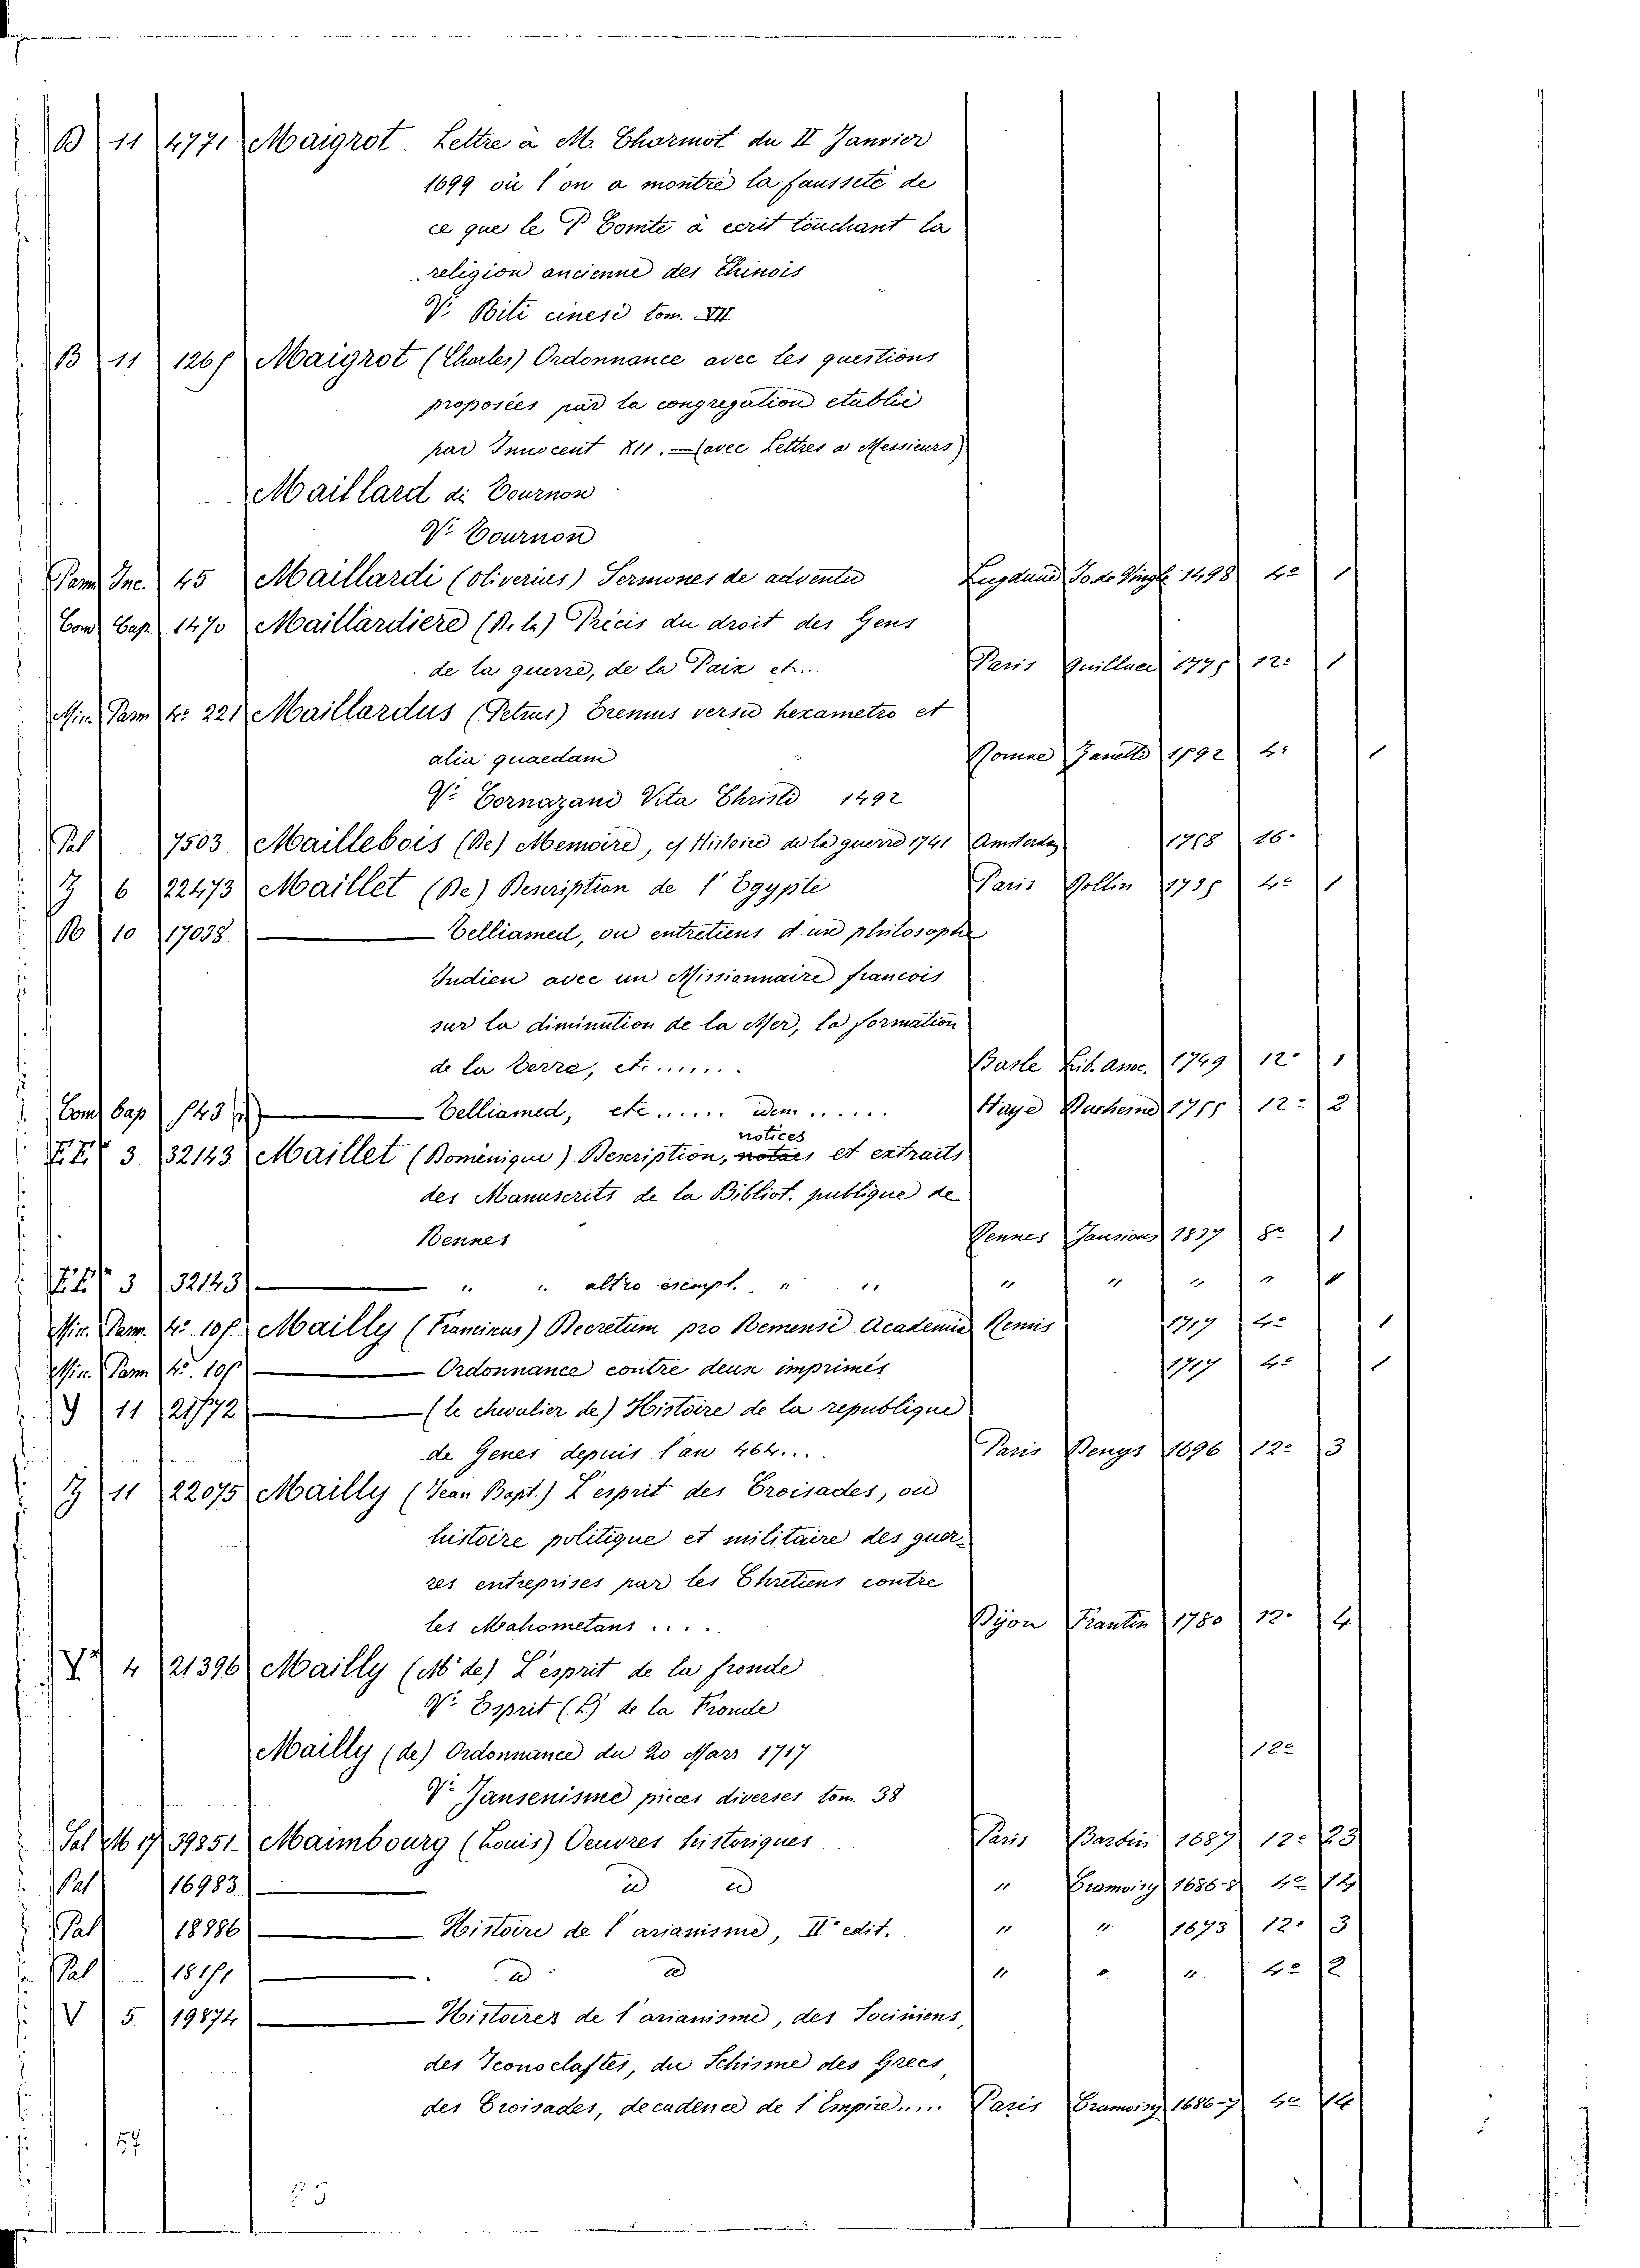 B 11 4771 Maigrot. Lettre a M. Charmot du II Janvier
1699 où l on a montrè la faussetè de
ce que le P Comte à ecrit touchant la
religion ancienne des Chinois
V: Riti cinesi tom. VII
B 11 126 Maigrot (Charles) Ordonnance avec les questions
proposèes par la congregation etablie
par Innocent XII. =(avec Lettres a Messieurs)
Maillard di Tournon
V: Tournon
Pam Inc. 45 Maillardi (oliverius) Sermones de adventu Lugduni Jo. de Vingle 1498 4º 1
Com Cap. 1470 Maillardiere Prècis du droit des Gens
de la guerre, de la Paix et... Paris Quillau 12º 1
Min. Pam 4º 221 Maillardus (Petrus) versu hexametro et
alia quaedam Romae Zanetti 1592 4º 1
V: Cornazani Vita Christi 1492
Pal 7503 Maillebois (De) Memoire, ej Histoire de la guerre 1741 Amsterdam 16º
Z 6 22473 Maillet (De) Description de l' Egypte Paris Rollin 4º 1
10 17038 ——— Telliamed, ou entretiens d un philosophe
Indien avec un Missionnaire francois
sur la diminution de la Mer, la formation
de la terre, et....... Basle Lib. Asso. 1749 12º 1
Com Cap ——— Telliamed, etc...... idem...... Haye 12º 2
notices
3 32143 Maillet (Domènique) Description, notaes et extraits
des Manuscrits de la Bibliot. publique de
Rennes Rennes Jausions 1837 8º 1
3 32143 ——— " " altro esempl. " " " " " " 1
Min. Pam. 4º Mailly (Francinus) Decretum pro Remensi Academia Remis 1717 4º 1
Min. Pam 4º. ——— Ordonnance contre deux imprimès 1717 4º 1
Y 11 ——— (le chevalier de) Histoire de la republique
de Genes depuis l an 464.... Paris Denys 1696 12º 3
Z 11 22075 Mailly (Jean Bapt.) L'esprit des Croisades, ou
histoire politique et militaire des guer-
res entreprises par les Chretiens contre
les Mahometans..... Dijon Frantin 1780 12º 4
4 21396 Mailly (Mr de) L'esprit de la fronde
V: Esprit (L') de la Fronde
Mailly (de) Ordonnance du 20 Mars 1717 12º
V: Jansenisme pieces diverses tom. 38
Sal M 17 39851 Maimbourg (Louis) Oeuvres historiques Paris Barbin 1687 12º 23
Pal 16983 ——— id id " Cramoisy 1686-8 4º 14
Pal 18886 ——— Histoire de l' arianisme, II edit. " " 1673 12º 3
Pal ——— id id " " " 4º 2
V 5. 19874 ——— Histoires de l'arianisme, des Sociniens,
des Iconoclastes, du Schisme des Grecs,
des Croisades, decadence de l' Empire..... Paris Cramoisy 1686-7 4º 14
57